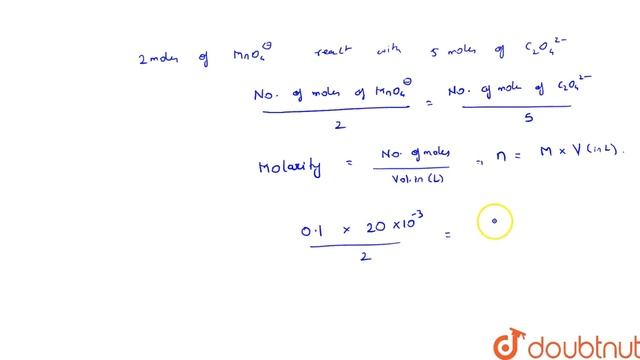 2 moles of MnO₄⊖ react with 5 moles of C₂O₄²⁻
No. of moles of MnO₄⊖ / 2 = No. of mole of C₂O₄²⁻ / 5
Molarity = No. of moles / Vol. in (L) ⇒ n = M × V (in L).
0.1 × 20 × 10⁻³ / 2 =
doubtnut